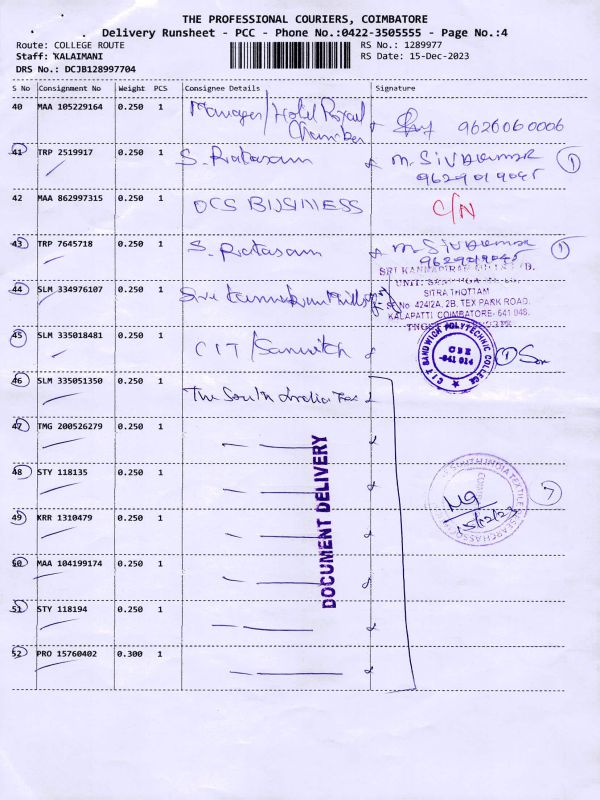 THE PROFESSIONAL COURIERS, COIMBATORE
Delivery Runsheet - PCC - Phone No.:0422-3505555 - Page No.:4
Route: COLLEGE ROUTE RS No.: 1289977
Staff: KALAIMANI RS Date: 15-Dec-2023
DRS No.: DCJB128997704
S No Consignment No Weight PCS Consignee Details Signature
40 MAA 105229164 0.250 1 Manager/Hotel Royal
Chamber 9626060006
41 TRP 2519917 0.250 1 S. M. SIVAKUMAR 1
9629019045
42 MAA 862997315 0.250 1 OCS BUSINESS C/N
43 TRP 7645718 0.250 1 S. M. SIVAKUMAR 1
9629019045
SRI
UNIT:
44 SLM 334976107 0.250 1 SITRA THOTTAM
42/12A, 2B, TEX PARK ROAD,
KALAPATTI COIMBATORE- 641 048.
45 SLM 335018481 0.250 1 CIT/Sanwitch
C I T SANDWICH POLYTECHNIC COLLEGE
CBE
-641 014
1
46 SLM 335051350 0.250 1 The South India Tex
47 TMG 200526279 0.250 1
48 STY 118135 0.250 1
SOUTH INDIA TEXTILE RESEARCH ASSO
15/12/23
7
49 KRR 1310479 0.250 1
50 MAA 104199174 0.250 1
51 STY 118194 0.250 1
52 PRO 15760402 0.300 1
DOCUMENT DELIVERY